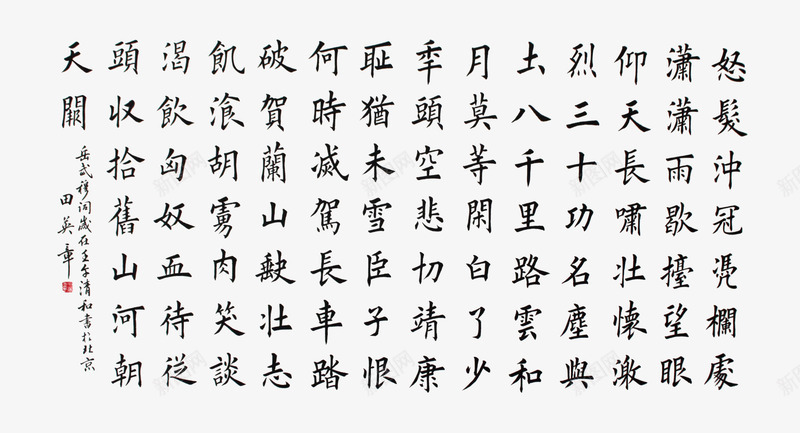 怒髮沖冠凴欄處
瀟瀟雨歇擡望眼
仰天長嘯壯懷激
烈三十功名塵與
土八千里路雲和
月莫等閑白了少
年頭空悲切靖康
耻猶未雪臣子恨
何時滅駕長車踏
破賀蘭山缺壯志
飢飡胡虜肉笑談
渴飲匈奴血待從
頭収拾舊山河朝
天闕
岳武穆詞歲在壬午清和書於北京
田英章